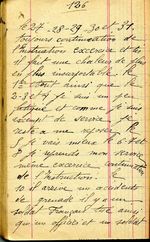 126
le 27. 28-29. 30 et 31.
toujours continuation de
l'instruction exercice et
il fait une chaleur de plus
en plus insurportable. le
1er Août ainsi que le
2-3- je suis un peu
fatigué et comme je suis
exempt de service je
reste a me reposer. le
5 je vais mieux le 6 et
7 je reprends mon
même exercice
de l'instruction. le
10 il arrive un accident
de grenade il y a un
soldat Français tué ainsi
qu'un officier et un soldat